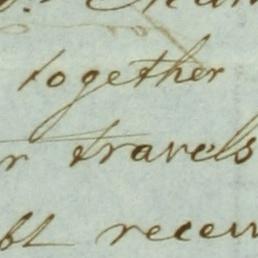 together
r travels
bt recei